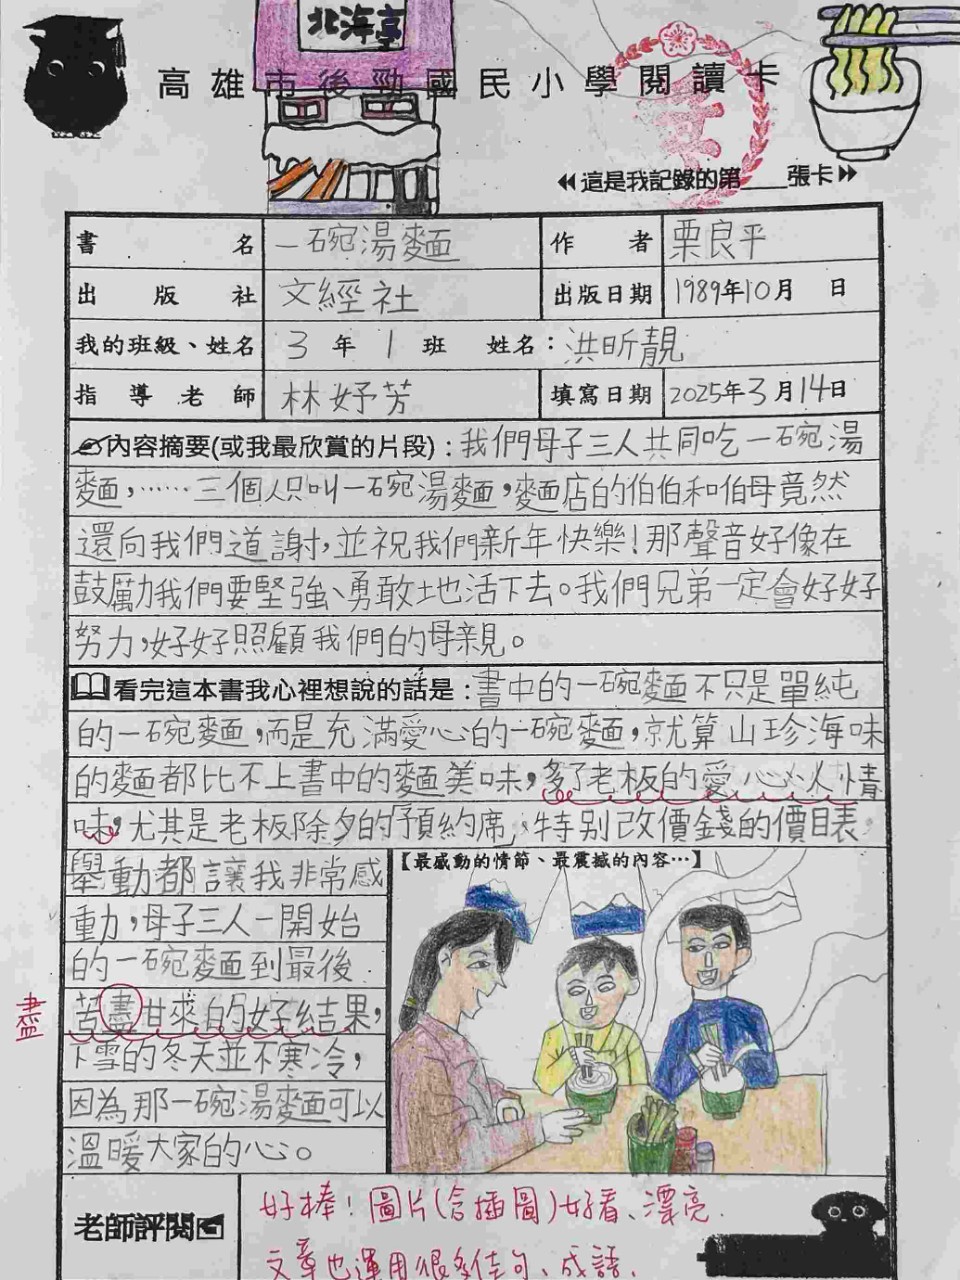 北海亭
高雄市後勁國民小學閱讀卡
這是我記錄的第____張卡
書名 一碗湯麵 作者 栗良平
出版社 文經社 出版日期 1989年10月 日
我的班級、姓名 3年1班 姓名：洪昕靚
指導老師 林妤芳 填寫日期 2025年3月14日
內容摘要(或我最欣賞的片段)：我們母子三人共同吃一碗湯
麵，……三個人只叫一碗湯麵，麵店的伯伯和伯母竟然
還向我們道謝，並祝我們新年快樂！那聲音好像在
鼓勵我們要堅強、勇敢地活下去。我們兄弟一定會好好
努力，好好照顧我們的母親。
看完這本書我心裡想說的話是：書中的一碗麵不只是單純
的一碗麵，而是充滿愛心的一碗麵，就算山珍海味
的麵都比不上書中的麵美味，多了老板的愛心人情
味，尤其是老板除夕的「預約席」，特別改價錢的價目表
舉動都讓我非常感
動，母子三人一開始
的一碗麵到最後
苦盡甘來的好結果，
下雪的冬天並不寒冷，
因為那一碗湯麵可以
溫暖大家的心。
盡
【最感動的情節、最震撼的內容…】
老師評閱
好棒！圖片(含插圖)好看、漂亮.
文章也運用很多佳句、成語.